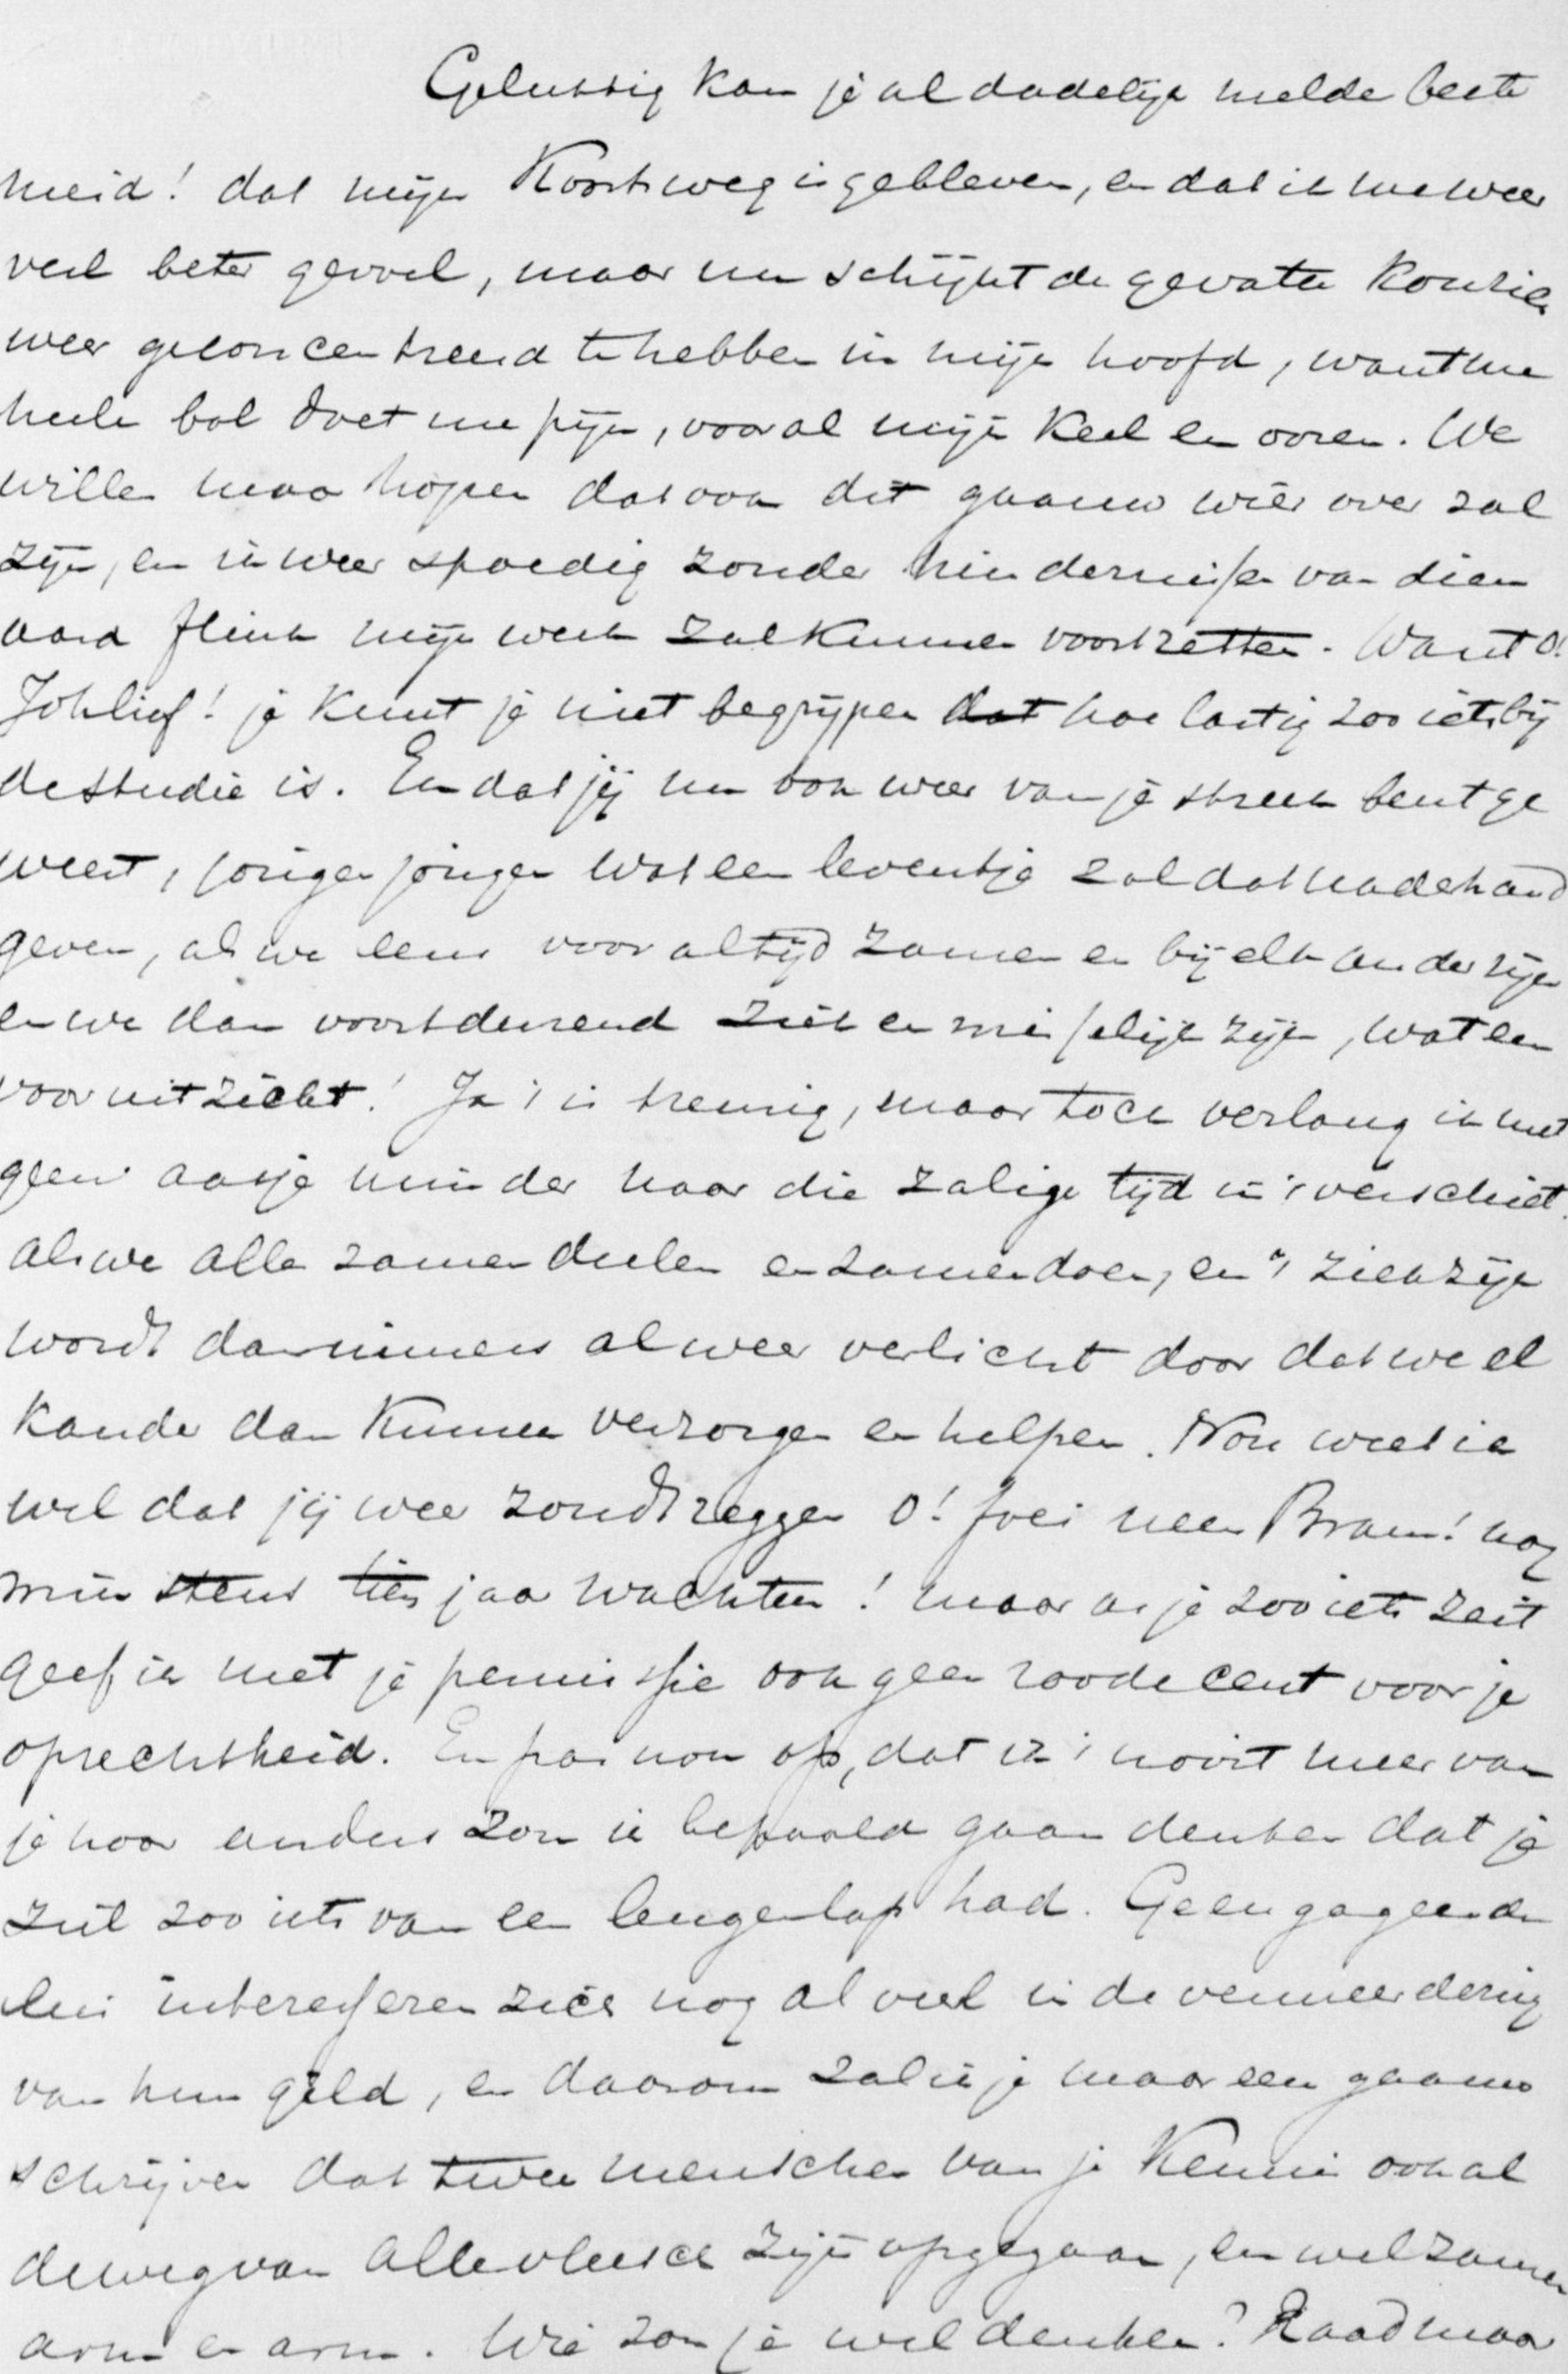 Gelukkig kan je al dadelijk melde beste
meid! dat mijn Koorts weg is gebleven, en dat ik me weer
veel beter gevoel, maar nu schijnt de gevatte kou zich
weer geconcentreerd te hebben in mijn hoofd, want me
heele bol doet me pijn, vooral mijn keel en ooren. We
willen maar hopen dat ook dit gaauw weer over zal
zijn, en ik weer spoedig zonder hindernissen van dien
aard flink mijn werk zal kunnen voortzetten. Want O!
Joh lief! je kunt je niet begrijpen dat hoe lastig zoo iets bij
de studie is. En dat jij nu ook weer van je streek bent ge
weest, jonge jonge wat een leventje zal dat nadehand
geven, als we eens voor altijd zamen en bij elkander zijn
en we dan voortdurend ziek en misselijk zijn, wat een
vooruitzicht! Ja 't is treurig, maar toch verlang ik met
geen aasje minder naar die zalige tijd in 't verschiet.
als we alles zamen deelen en zamen doen, en 't ziek zijn
wordt dan immers al weer verlicht door dat we el
kander dan kunnen verzorgen en helpen. Nou weet ik
wel dat jij weer zoudt zeggen O! foei neen Bram! nog
minstens tien jaar wachten! maar as je zoo iets zeit
geef ik met je permissie ook geen roode cent voor je
oprechtheid. En pas nou op, dat ik 't nooit meer van
je hoor anders zou ik bepaald gaan denken dat je
zelf zoo iets van een leugenlap had. Geengageerde
lui interesseren zich nog al veel in de vermeerdering
van hun gild, en daarom zal ik je maar een gaauw
schrijven dat twee menschen van je kennis ook al
de weg van alle vleesch zijn opgegaan, en wel zamen
arm en arm. Wie zou je wel denken? Raad maar